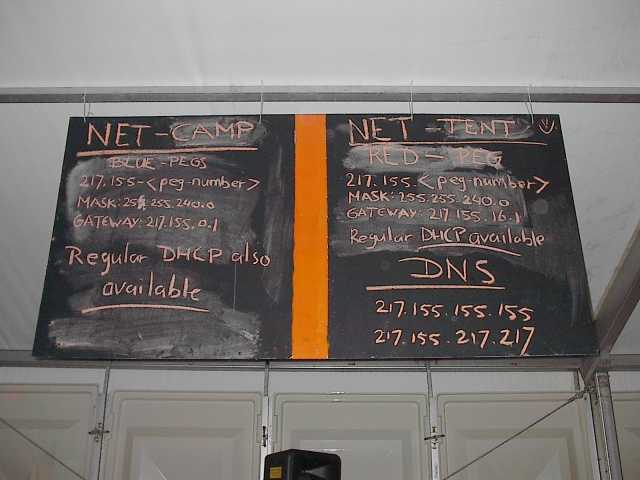 NET-CAMP
BLUE-PEGS
217.155-<peg-number>
MASK: 255.255.240.0
GATEWAY: 217.155.0.1
Regular DHCP also
available
NET-TENT
RED-PEG
217.155.<peg-number>
MASK: 255.255.240.0
GATEWAY: 217.155.16.1
Regular DHCP available
DNS
217.155.155.155
217.155.217.217